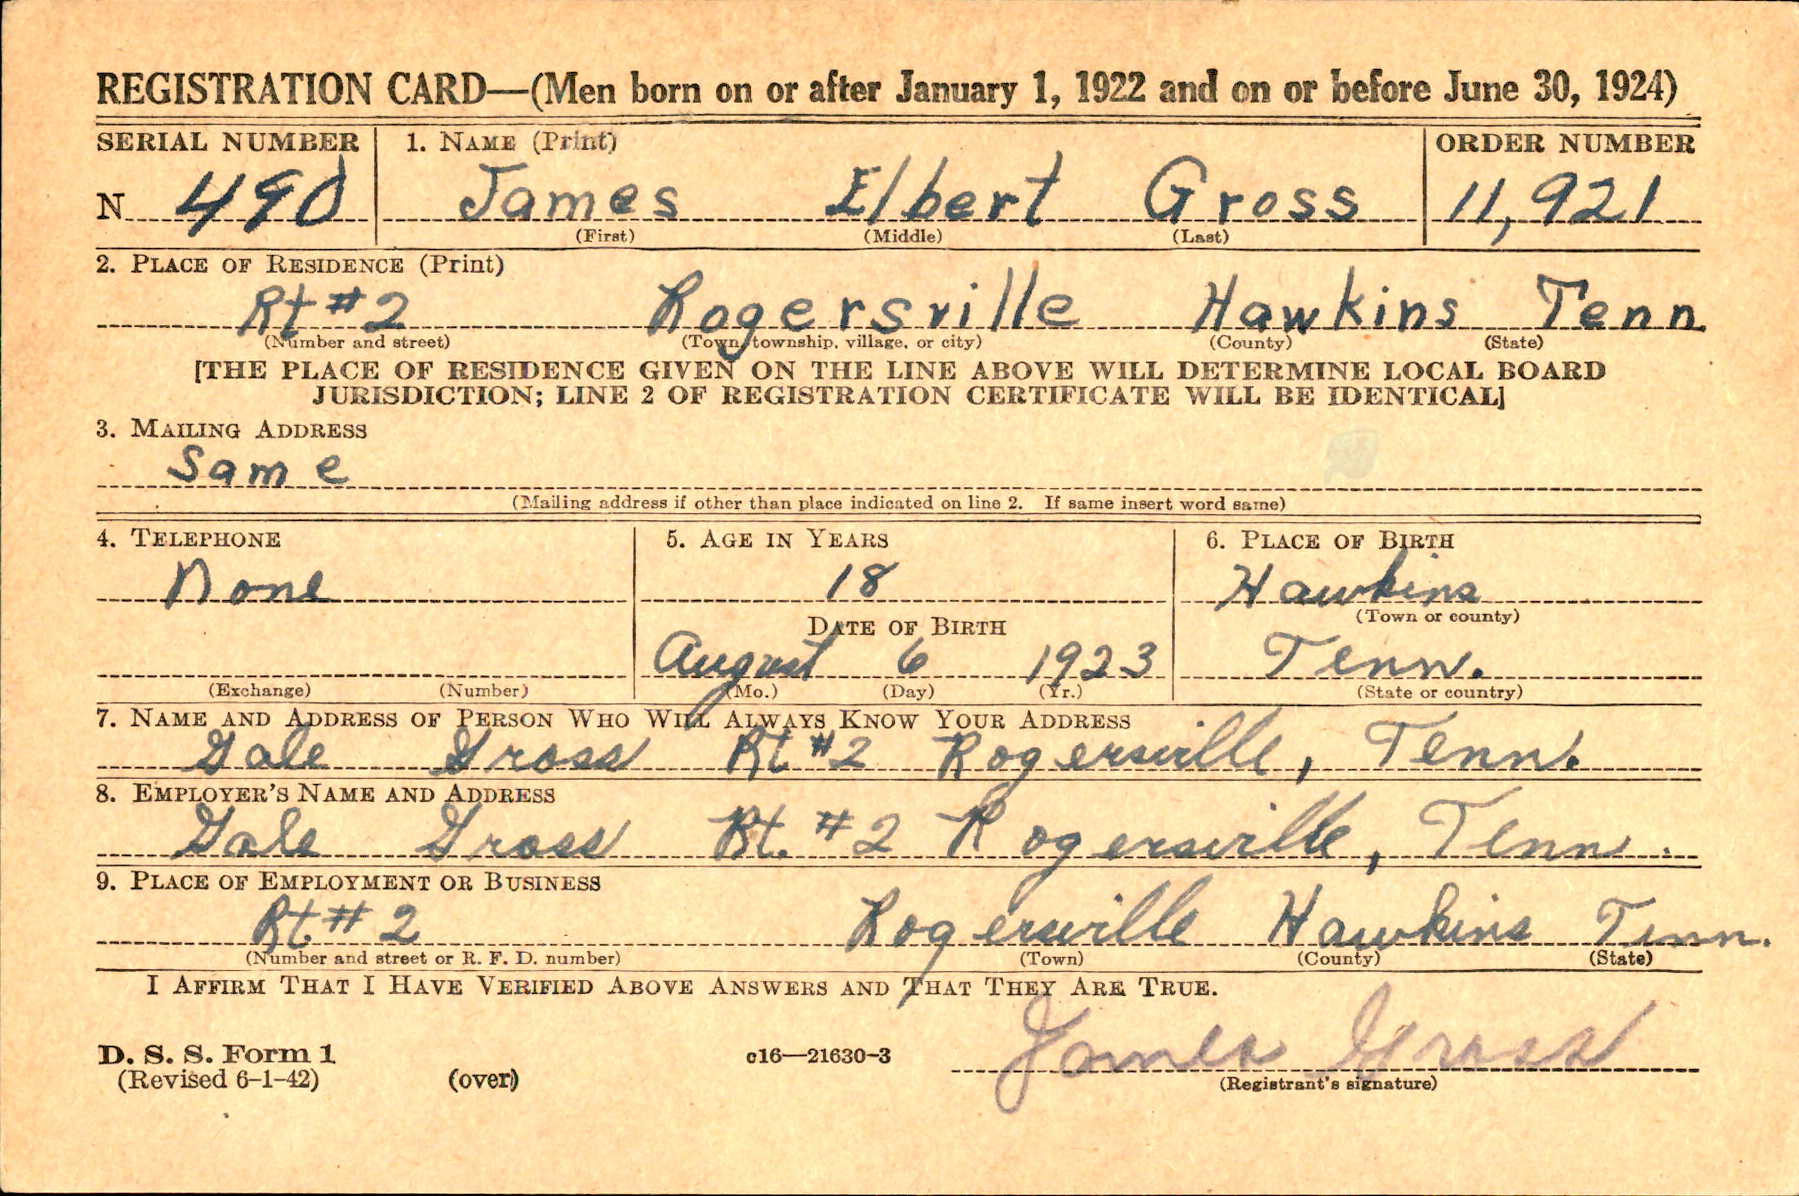 REGISTRATION CARD—(Men born on or after January 1, 1922 and on or before June 30, 1924)
SERIAL NUMBER 1. NAME (Print) ORDER NUMBER
N 490 James Elbert Gross 11,921
(First) (Middle) (Last)
2. PLACE OF RESIDENCE (Print)
Rt #2 Rogersville Hawkins Tenn
(Number and street) (Town, township, village, or city) (County) (State)
[THE PLACE OF RESIDENCE GIVEN ON THE LINE ABOVE WILL DETERMINE LOCAL BOARD
JURISDICTION; LINE 2 OF REGISTRATION CERTIFICATE WILL BE IDENTICAL]
3. MAILING ADDRESS
Same
(Mailing address if other than place indicated on line 2. If same insert word same)
4. TELEPHONE 5. AGE IN YEARS 6. PLACE OF BIRTH
None 18 Hawkins
(Town or county)
DATE OF BIRTH
August 6 1923 Tenn.
(Exchange) (Number) (Mo.) (Day) (Yr.) (State or country)
7. NAME AND ADDRESS OF PERSON WHO WILL ALWAYS KNOW YOUR ADDRESS
Gale Gross Rt #2 Rogersville, Tenn.
8. EMPLOYER'S NAME AND ADDRESS
Gale Gross Rt. #2 Rogersville, Tenn.
9. PLACE OF EMPLOYMENT OR BUSINESS
Rt. #2 Rogersville Hawkins Tenn.
(Number and street or R. F. D. number) (Town) (County) (State)
I AFFIRM THAT I HAVE VERIFIED ABOVE ANSWERS AND THAT THEY ARE TRUE.
James Gross
D. S. S. Form 1 c16—21630-3
(Revised 6-1-42) (over) (Registrant's signature)